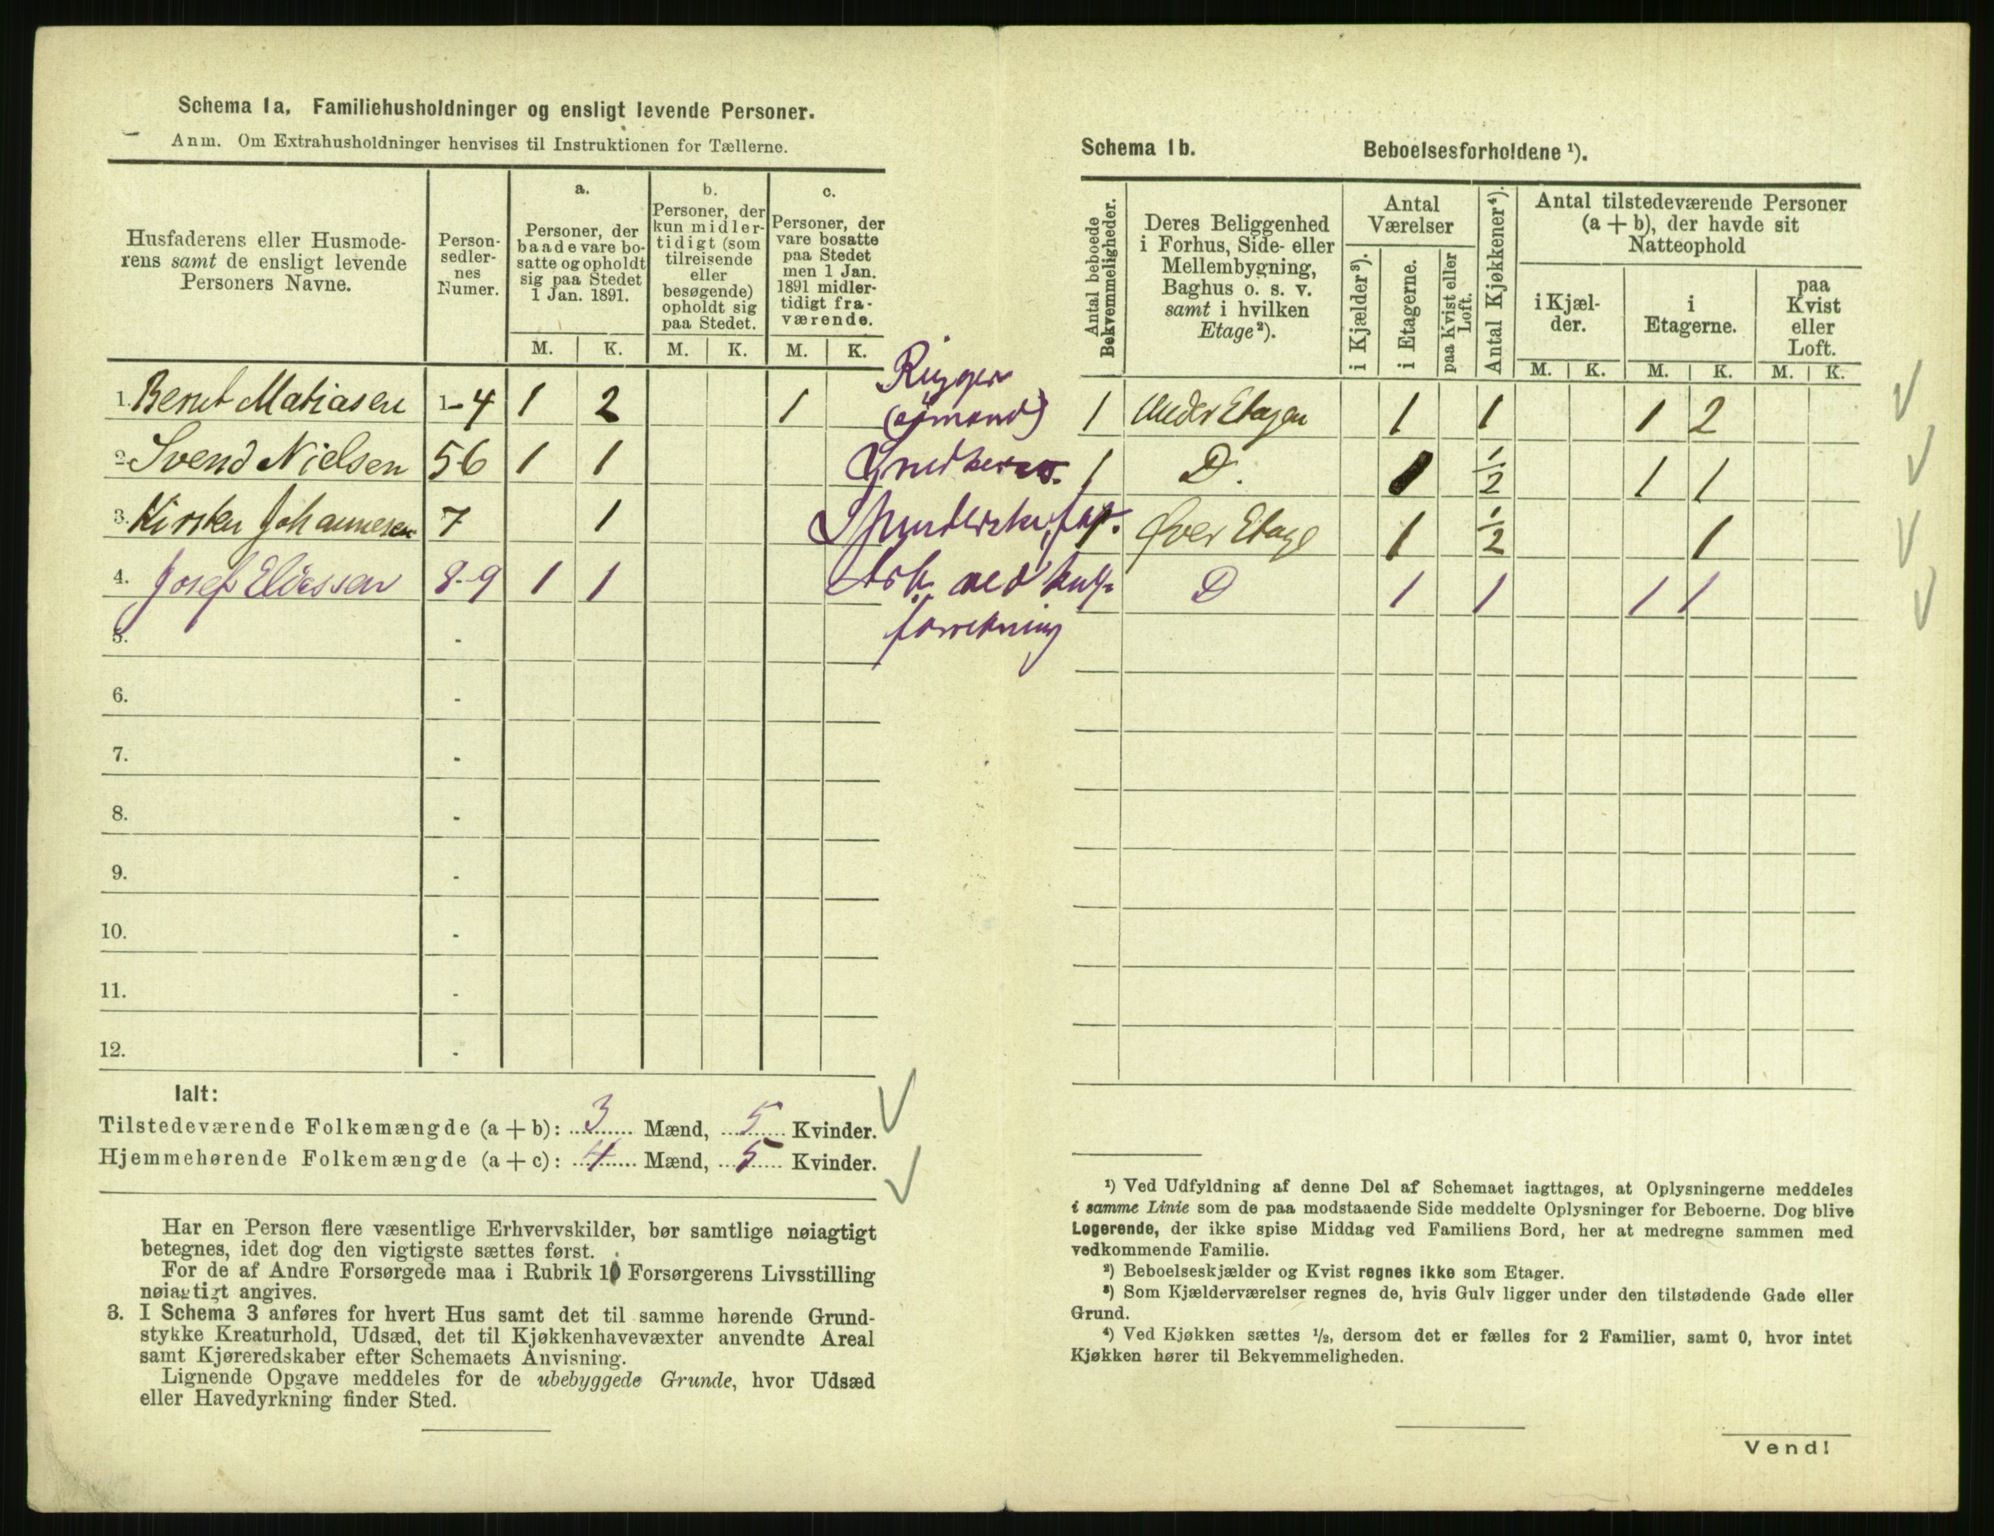 Schema 1a. Familiehusholdninger og ensligt levende Personer.
Anm. Om Extrahusholdninger henvises til Instruktionen for Tællerne.
Husfaderens eller Husmode-
rens samt de ensligt levende
Personers Navne.
Person-
sedler-
nes
Numer.
a.
Personer, der
baade vare bo-
satte og opholdt
sig paa Stedet
1 Jan. 1891.
b.
Personer, der
kun midler-
tidigt (som
tilreisende
eller
besøgende)
opholdt sig
paa Stedet.
c.
Personer, der
vare bosatte
paa Stedet
men 1 Jan.
1891 midler-
tidigt fra-
værende.
M. K. M. K. M. K.
1. Bernt Matiasen 1-4 1 2 1 Rigger
(Sømand)
2. Svend Nielsen 56 1 1
3. Kirsten Johannesen 7 1
4. Josef Eliessen 8-9 1 1 Arb. ved
forretning
5. -
6. -
7. -
8. -
9. -
10. -
11. -
12. -
Ialt:
Tilstedeværende Folkemængde (a + b): 3 Mænd, 5 Kvinder.
Hjemmehørende Folkemængde (a + c): 4 Mænd, 5 Kvinder.
Har en Person flere væsentlige Erhvervskilder, bør samtlige nøiagtigt
betegnes, idet dog den vigtigste sættes først.
For de af Andre Forsørgede maa i Rubrik 10 Forsørgerens Livsstilling
nøiagtigt angives.
3. I Schema 3 anføres for hvert Hus samt det til samme hørende Grund-
stykke Kreaturhold, Udsæd, det til Kjøkkenhavevæxter anvendte Areal
samt Kjøreredskaber efter Schemaets Anvisning.
Lignende Opgave meddeles for de ubebyggede Grunde, hvor Udsæd
eller Havedyrkning finder Sted.
Schema 1b. Beboelsesforholdene ¹).
Antal beboede
Bekvemmeligheder.
Deres Beliggenhed
i Forhus, Side- eller
Mellembygning,
Baghus o. s. v.
samt i hvilken
Etage ²).
Antal
Værelser
i Kjælder ³).
i Etagerne.
paa Kvist eller
Loft.
Antal Kjøkkener ⁴).
Antal tilstedeværende Personer
(a + b), der havde sit
Natteophold
i Kjæl-
der.
i
Etagerne.
paa
Kvist
eller
Loft.
M. K. M. K. M. K.
1 Under Etagen 1 1 1 2
1 D. 1 1/2 1 1
1 Øver Etage 1 1/2 1
D 1 1 1 1
¹) Ved Udfyldning af denne Del af Schemaet iagttages, at Oplysningerne meddeles
i samme Linie som de paa modstaaende Side meddelte Oplysninger for Beboerne. Dog blive
Logerende, der ikke spise Middag ved Familiens Bord, her at medregne sammen med
vedkommende Familie.
²) Beboelseskjælder og Kvist regnes ikke som Etager.
³) Som Kjælderværelser regnes de, hvis Gulv ligger under den tilstødende Gade eller
Grund.
⁴) Ved Kjøkken sættes ½, dersom det er fælles for 2 Familier, samt 0, hvor intet
Kjøkken hører til Bekvemmeligheden.
Vend!